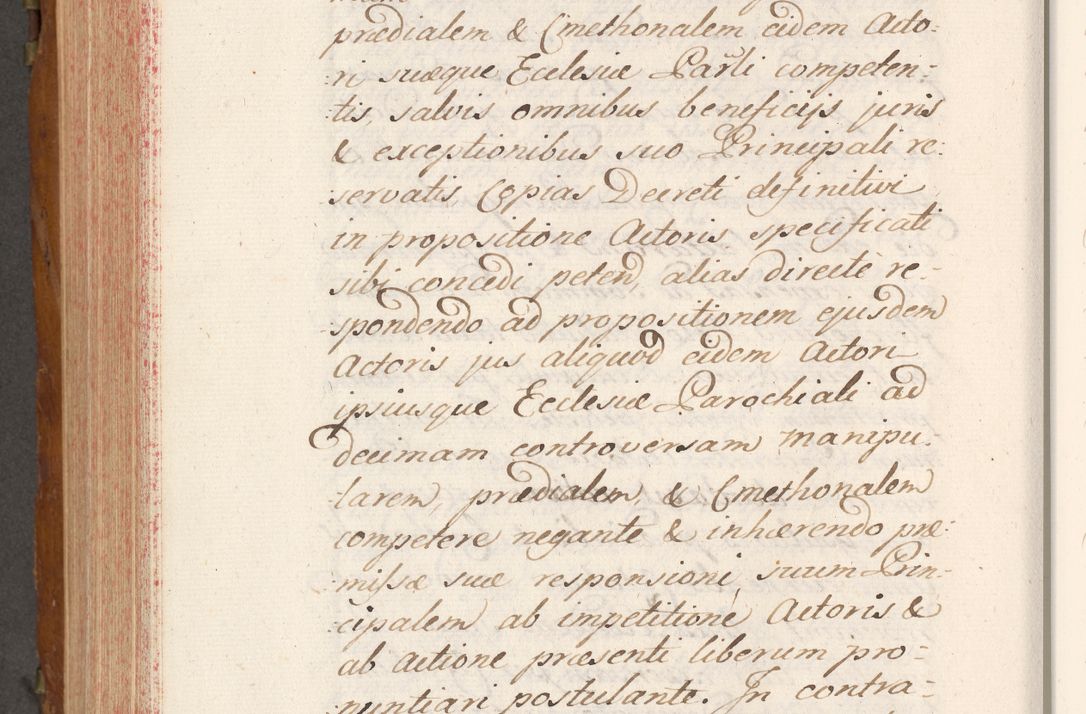 prædialem & Cmethonalem eidem Acto:
ri suæque Ecclesiæ Parli competen:
tis, salvis omnibus beneficijs juris
& exceptionibus suo Principali re:
servatis, Copias Decreti definitivi
in propositione Actoris specificati
sibi concedi peten, alias directè re:
spondendo ad propositionem ejusdem
Actoris jus aliquod eidem Actori
ipsiusque Ecclesiæ Parochiali ad
decimam controversam manipu:
larem, prædialem, & Cmethonalem
competere negante & inhærendo præ:
missæ suæ responsioni, suum Prin:
cipalem ab impetitione Actoris &
ab actione præsenti liberum pro:
nuntiari postulante. In contra: